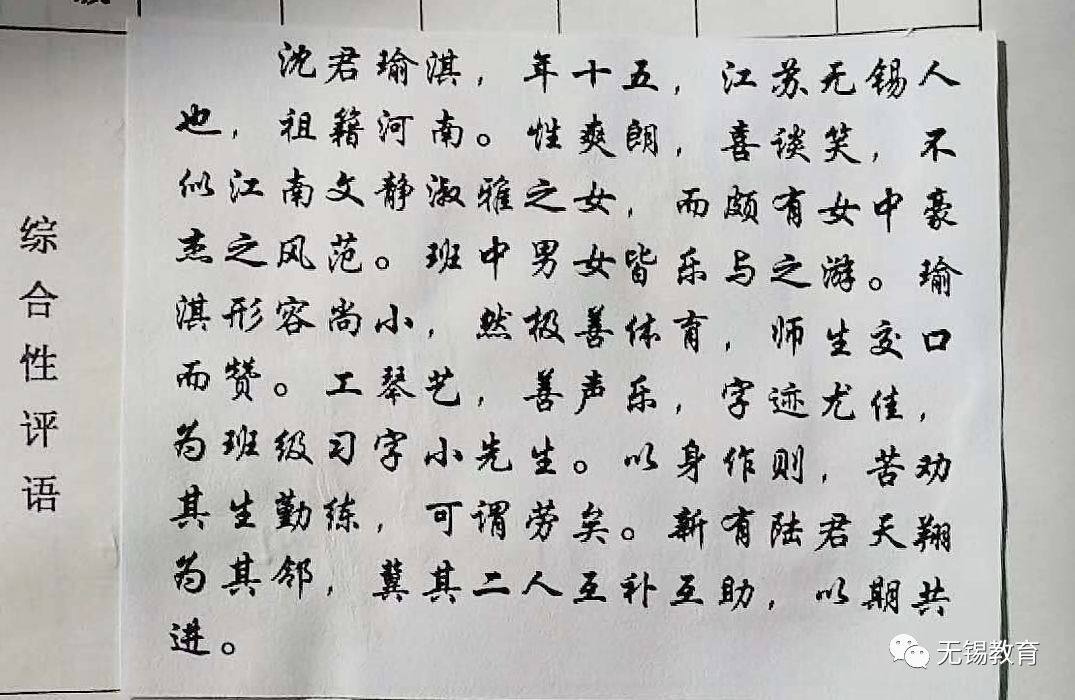 沈君瑜淇，年十五，江苏无锡人
也，祖籍河南。性爽朗，喜谈笑，不
似江南文静淑雅之女，而颇有女中豪
杰之风范。班中男女皆乐与之游。瑜
淇形容尚小，然极善体育，师生交口
而赞。工琴艺，善声乐，字迹尤佳，
为班级习字小先生。以身作则，苦劝
其生勤练，可谓劳矣。新有陆君天翔
为其邻，冀其二人互补互助，以期共
进。
综合性评语
无锡教育